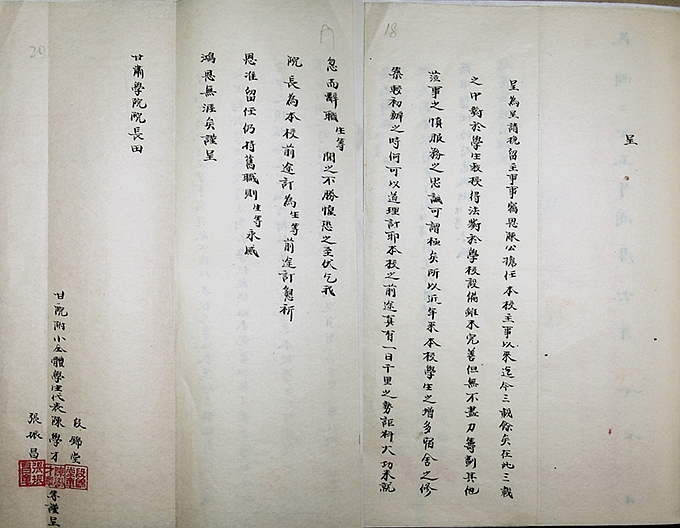 18
呈
呈為呈請挽留主事事竊思陳公擔任本校主事以來迄今三載餘矣在此三載
之中對於學生教授得法對於學校設備雖未完善但無不盡力籌劃其他
蒞事之慎服務之忠誠可謂極矣所以近年來本校學生之增多宿舍之修
築較初辦之時何可以道理計耶本校之前途真有一日千里之勢詎料大功未就
忽而辭職生等聞之不勝惶恐之至伏乞我
院長為本校前途計為生等前途計懇祈
恩准留任仍持舊職則生等永感
鴻恩無涯矣謹呈
甘肅學院院長田
20
甘院附小全體學生代表陳學才等謹呈
段錦堂
張振昌